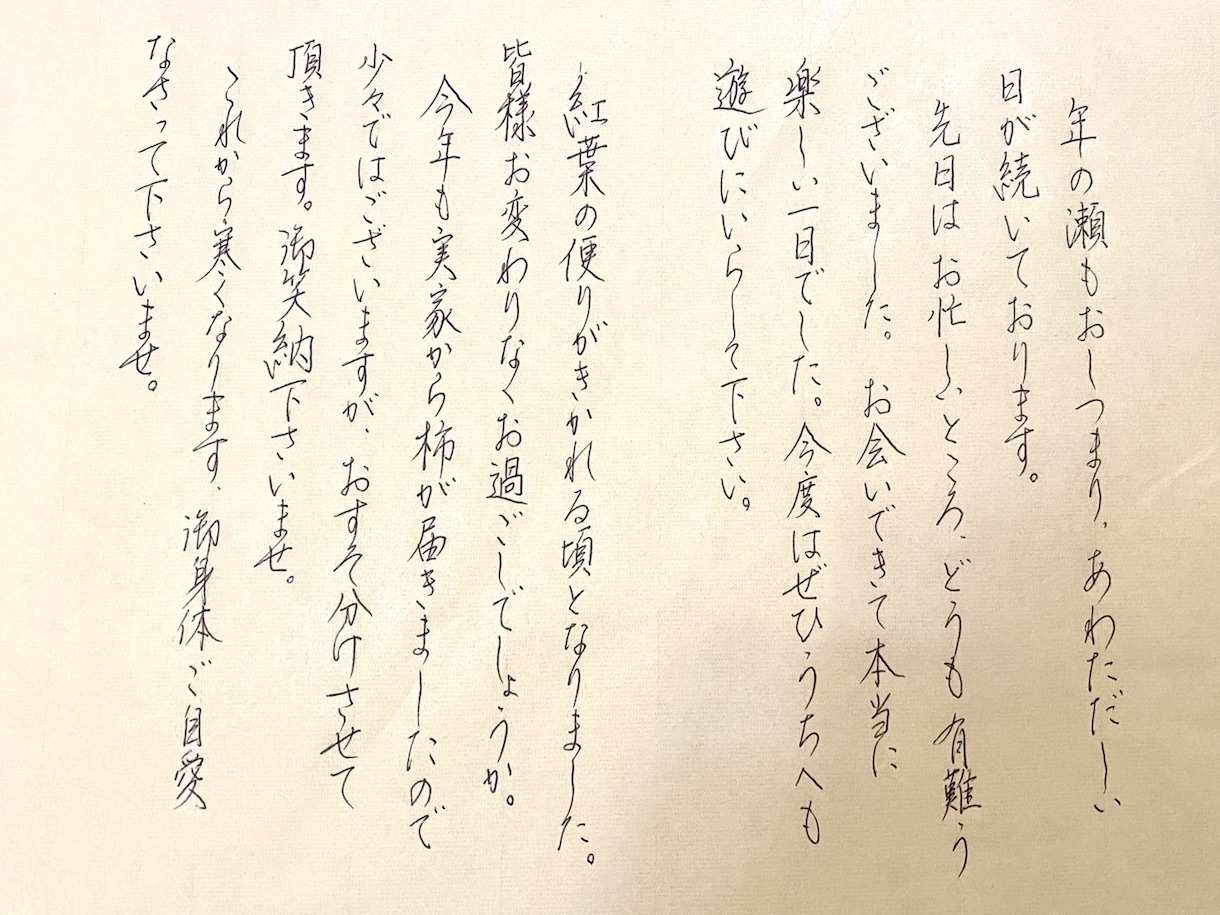 年の瀬もおしつまり、あわただしい
日が続いております。
先日はお忙しいところ、どうも有難う
ございました。お会いできて本当に
楽しい一日でした。今度はぜひうちへも
遊びにいらして下さい。
紅葉の便りがきかれる頃となりました。
皆様お変わりなくお過ごしでしょうか。
今年も実家から柿が届きましたので
少々ではございますが、おすそ分けさせて
頂きます。御笑納下さいませ。
これから寒くなります、御身体ご自愛
なさって下さいませ。